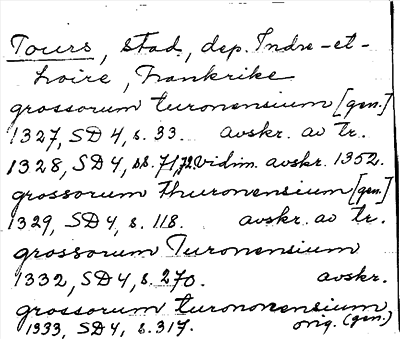 Tours, stad, dep. Indre-et-
Loire, Frankrike
grossorum turonensium [gen.]
1327, SD 4, s. 33. avskr. av tr.
1328, SD 4, ss. 71, 72 vidim. avskr. 1352.
grossorum thuronensium [gen]
1329, SD 4, s. 118. avskr. av tr.
grossorum Turonensium
1332, SD 4, s. 270. avskr.
grossorum turononensium
1333, SD 4, s. 317. orig. (gen.)